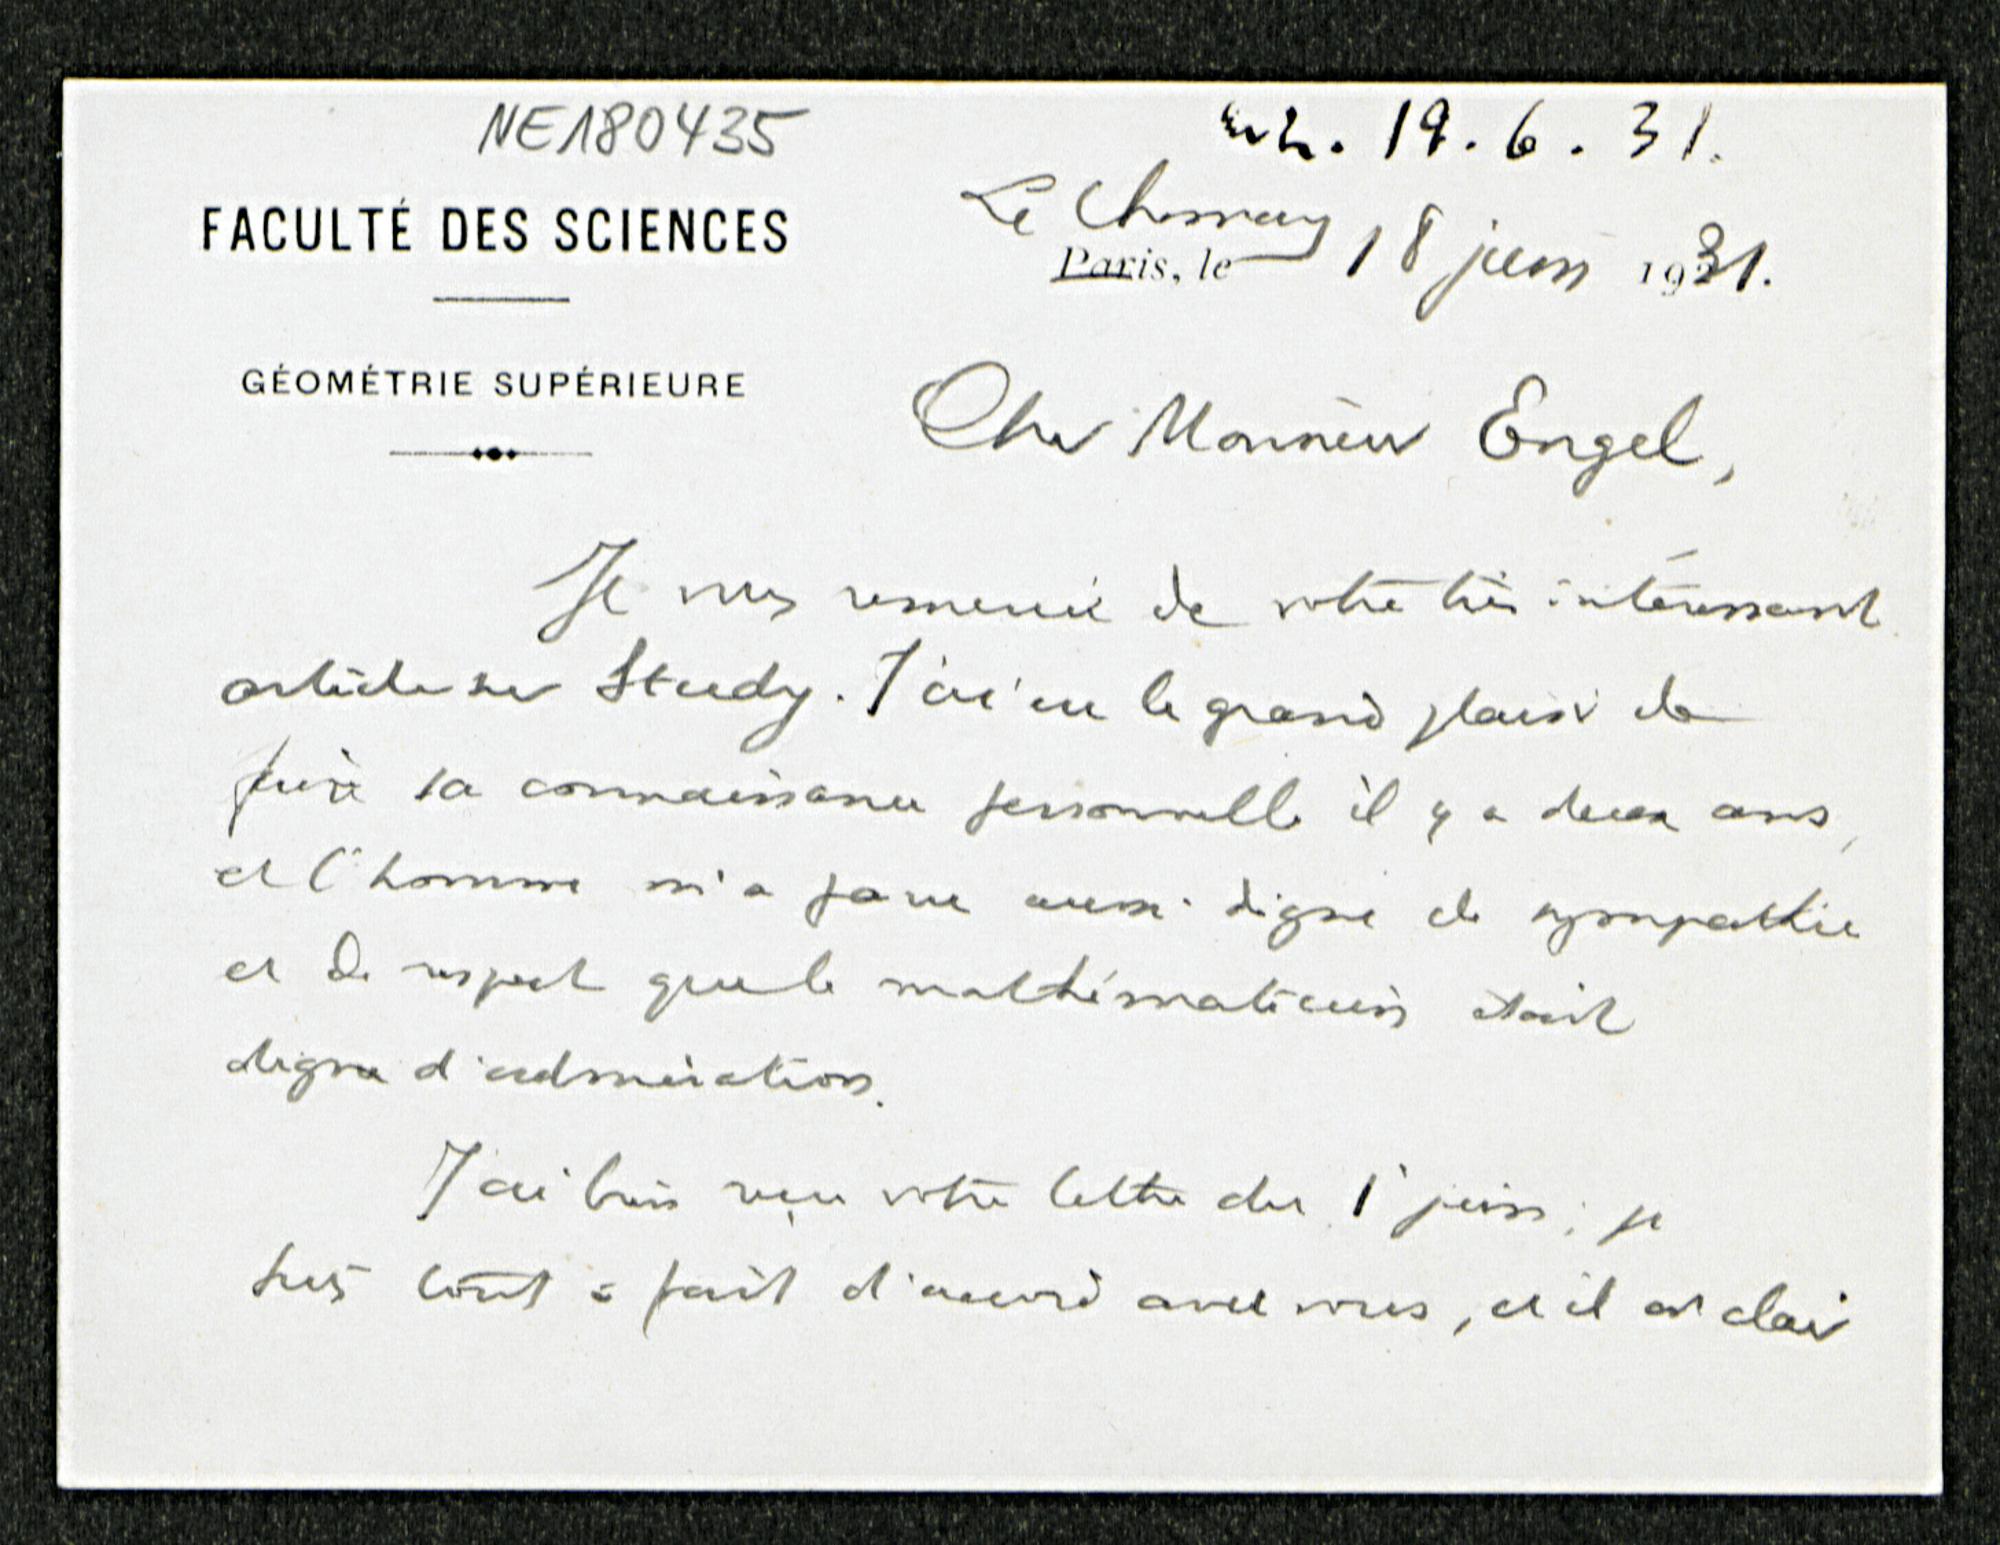 NE180435
erh. 19.6.31.
FACULTÉ DES SCIENCES
Le Chesnay
Paris, le 18 juin 1931.
GÉOMÉTRIE SUPÉRIEURE
Cher Monsieur Engel,
Je vous remercie de votre très intéressant
article sur Study. J'ai eu le grand plaisir de
faire sa connaissance personnelle il y a deux ans,
et l'homme m'a paru aussi digne de sympathie
et de respect que le mathématicien était
digne d'admiration.
J'ai bien reçu votre lettre du 1er juin; je
suis tout à fait d'accord avec vous, et il est clair